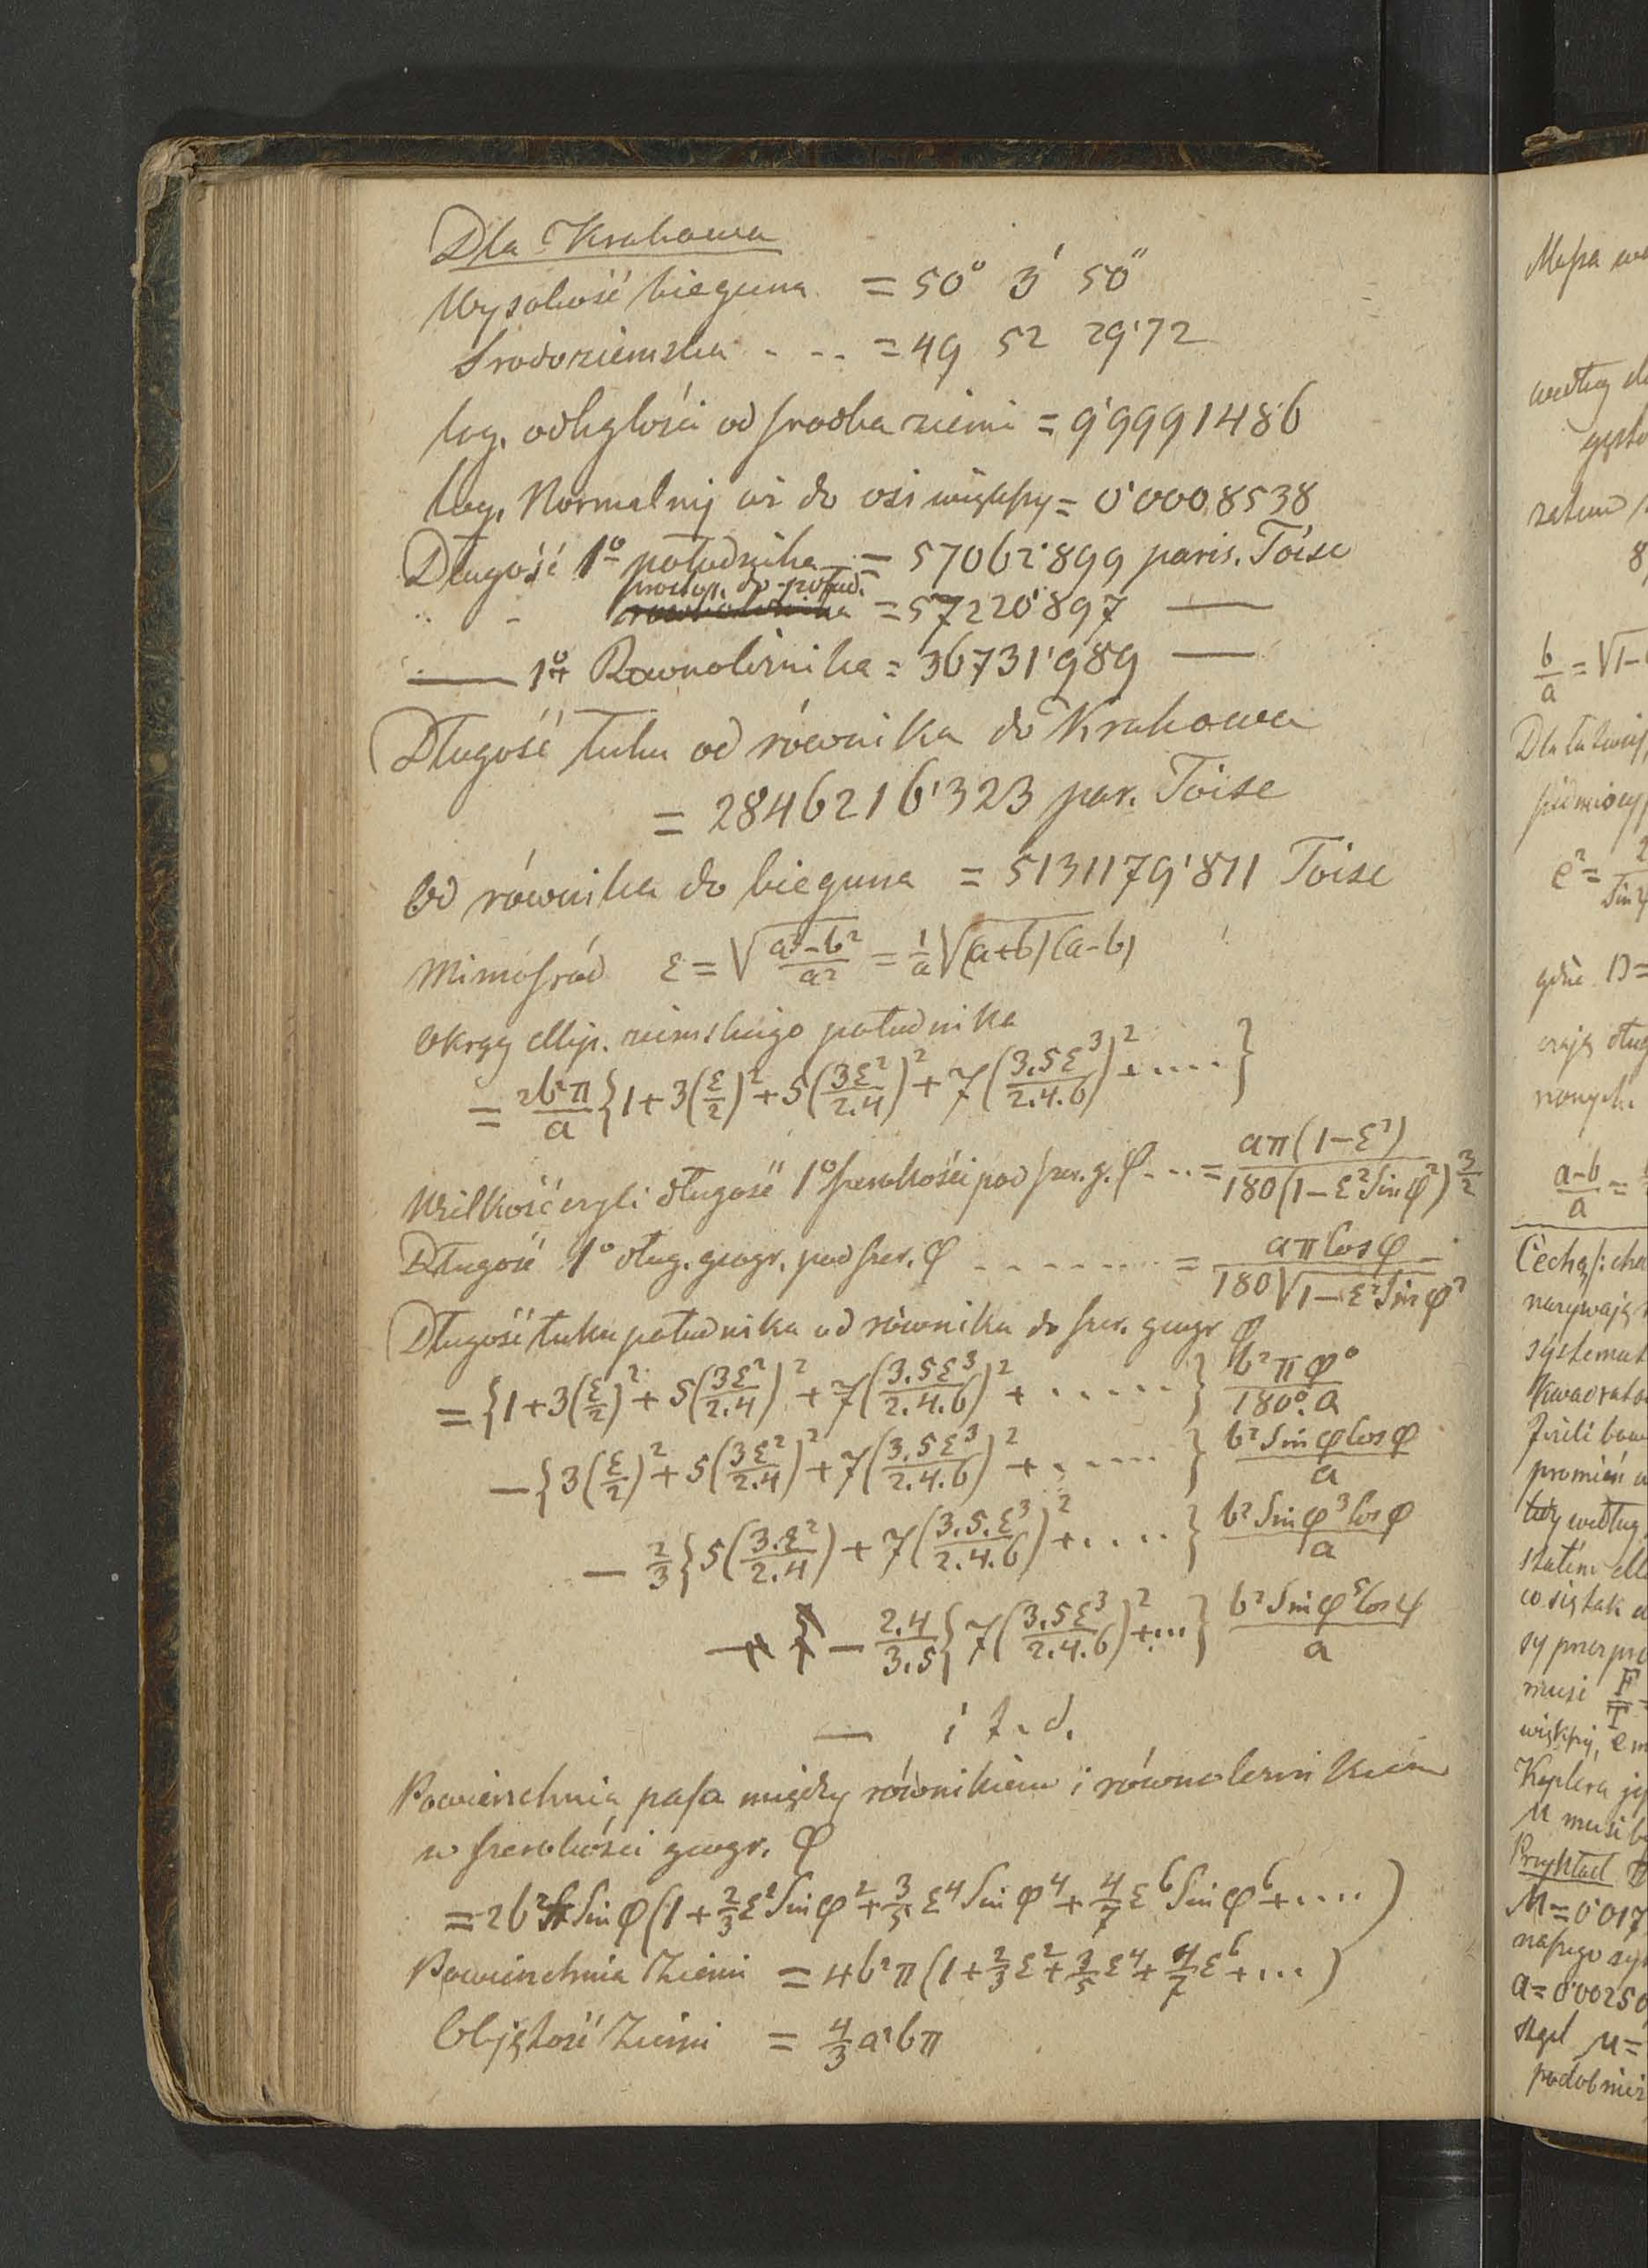 Dla Krakowa
Wysokość bieguna = 50° 3' 50"
Środoziemska - - - = 49 52 29'72
log. odległości od środka ziemi = 9'9991486
log. Normalnej aż do osi więkſzy = 0'0008538
Długość 1° południka = 57062'899 paris. Toise
prostop. do połud.
" - = 57220'897 —
— 1° Rownoleżnika = 36731'989 —
Długość łuku od równika do Krakowa
= 2846216'323 par. Toise
Od równika do bieguna = 5131179'811 Toise
Mimoſród ε = √(a²-b²)/a² = 1/a √(a+b)(a-b)
Okrąg ellip. ziemskiego południka
= 2b²π/a {1+3(ε/2)²+5(3ε²/2.4)²+7(3.5ε³/2.4.6)²+....}
Wielkość czyli długość 1° ſzerokości pod ſzer. g. φ - - - = aπ(1-ε²)/180(1-ε²Sinφ²)^3/2
Długość 1° dług. geogr. pod ſzer. φ - - - - - - - - = aπCosφ/180√1-ε²Sinφ²
Długość łuku południka od równika do ſzer. geogr φ
= {1+3(ε/2)²+5(3ε²/2.4)²+7(3.5ε³/2.4.6)²+......} b²πφ°/180°.a
— {3(ε/2)²+5(3ε²/2.4)²+7(3.5ε³/2.4.6)²+......} b²SinφCosφ/a
— 2/3{5(3.ε²/2.4)+7(3.5.ε³/2.4.6)²+....} b²Sinφ³Cosφ/a
— 2.4/3.5{7(3.5ε³/2.4.6)²+...} b²Sinφ⁵Cosφ/a
— i t. d.
Powierzchnia paſa między równikiem i równoleżnikiem
w ſzerokości geogr. φ
= 2b²π Sinφ(1+2/3ε²Sinφ²+3/5ε⁴Sinφ⁴+4/7ε⁶Sinφ⁶+....)
Powierzchnia Ziemi = 4b²π(1+2/3ε²+3/5ε⁴+4/7ε⁶+...)
Objętość Ziemi = 4/3a²bπ
Mapa
według
b/a = √1-
e² =
gdzie
a-b/a =
narywają
promień
według
co się tak
musi
Keplera
M musi
Przykład
M=0'017
a=0'0025
stąd μ=
podobnież